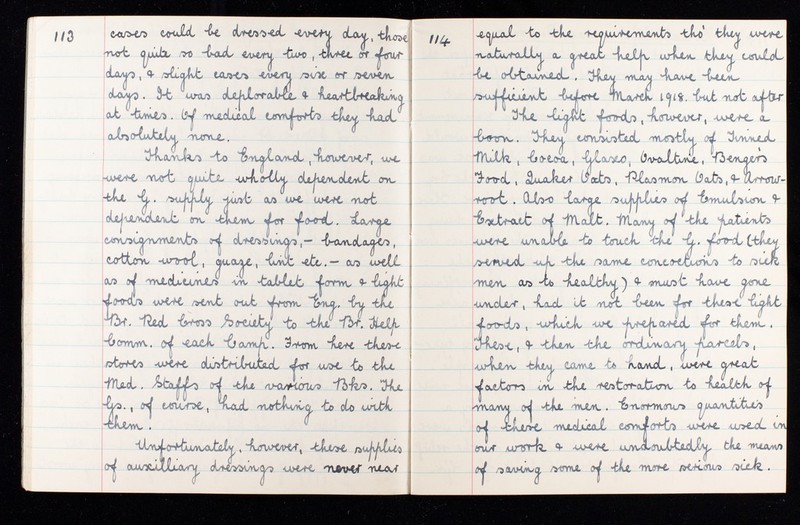 113
cases could be dressed every day, those
not quite so bad every two, three or four
days, & slight cases every six or seven
days. It was deplorable & heartbreaking
at times. Of medical comforts they had
absolutely none.
Thanks to England, however, we
were not quite wholly dependent on
the G. supply just as we were not
dependent on them for food. Large
consignments of dressings, – bandages,
cotton wool, guaze, lint etc. – as well
as of medicines in tablet form & light
foods were sent out from Eng. by the
Br. Red Cross Society to the Br. Help
Comm. of each Camp. From here these
stores were distributed for use to the
Med. Staffs of the various Bks. The
Gs., of course, had nothing to do with
them.
Unfortunately, however, these supplies
of auxilliary dressings were never near
114
equal to the requirements tho' they were
naturally a great help when they could
be obtained. They may have been
sufficient before March 1918. but not after
The light foods, however, were a
boon. They consisted mostly of Tinned
Milk, Cocoa, Glaxo, Ovaltine, Benger's
Food, Quaker Oats, Plasmon Oats, & Arrow-
root. Also large supplies of Emulsion &
Extract of Malt. Many of the patients
were unable to touch the G. food (they
served up the same concoctions to sick
men as to healthy) & must have gone
under, had it not been for these light
foods, which we prepared for them.
These, & then the ordinary parcels,
when they came to hand, were great
factors in the restoration to health of
many of the men. Enormous quantities
of these medical comforts were used in
our work & were undoubtedly the means
of saving some of the more serious sick.